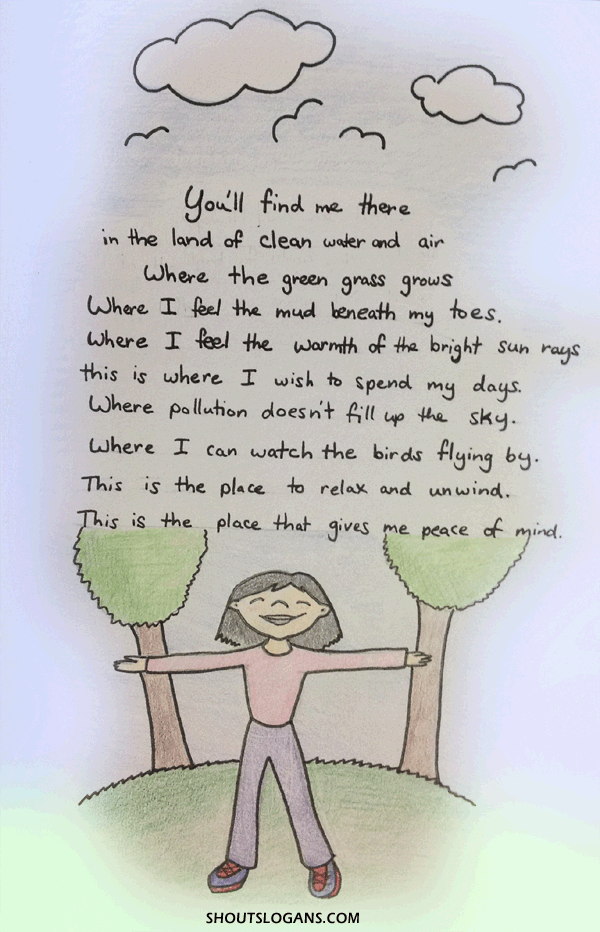 You'll find me there
in the land of clean water and air
Where the green grass grows
Where I feel the mud beneath my toes.
Where I feel the warmth of the bright sun rays
this is where I wish to spend my days.
Where pollution doesn't fill up the sky.
Where I can watch the birds flying by.
This is the place to relax and unwind.
This is the place that gives me peace of mind.
SHOUTSLOGANS.COM